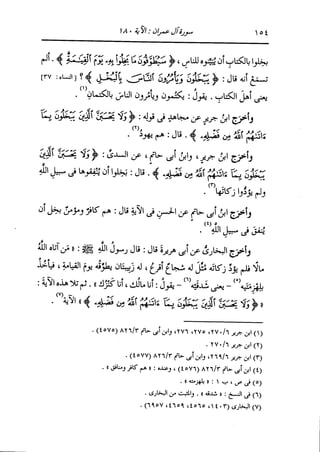 ١٥٤ سورة آل عمران : الآية ١٨٠
بخلوا بالكتاب أن يبينوه للناس ، ﴿ سَيُطَوَّقُونَ مَا بَخِلُوا بِهِ يَوْمَ الْقِيَامَةِ ﴾ . ألم
تسمع أنه قال : ﴿ يَبْخَلُونَ وَيَأْمُرُونَ النَّاسَ بِالْبُخْلِ ﴾ ؟ [النساء : ٣٧]
يعنى أهل الكتاب . يقول : يكتمون ويأمرون الناس بالكتمان (١) .
وأخرج ابن جرير عن مجاهد فى قوله : ﴿ وَلَا يَحْسَبَنَّ الَّذِينَ يَبْخَلُونَ بِمَا
آتَاهُمُ اللَّهُ مِنْ فَضْلِهِ ﴾ . قال : هم يهود (٢) .
وأخرج ابن جرير ، وابن أبى حاتم ، عن السدى : ﴿ وَلَا يَحْسَبَنَّ الَّذِينَ
يَبْخَلُونَ بِمَا آتَاهُمُ اللَّهُ مِنْ فَضْلِهِ ﴾ . قال : بخلوا أن ينفقوها فى سبيل الله
ولم يؤدوا زكاتها (٣) .
وأخرج ابن أبى حاتم عن الحسن فى الآية قال : هم كافر ومؤمن بخل أن
ينفق فى سبيل الله (٤) .
وأخرج البخارى عن أبى هريرة قال : قال رسول الله ﷺ : « من آتاه الله
مالا فلم يؤد زكاته مثل له شجاع أقرع ، له زبيبتان يطوقه يوم القيامة ، فيأخذ
بلهزمتيه (٥) - يعنى شدقيه (٦) - يقول : أنا مالك ، أنا كنزك » . ثم تلا هذه الآية :
« ﴿ وَلَا يَحْسَبَنَّ الَّذِينَ يَبْخَلُونَ بِمَا آتَاهُمُ اللَّهُ مِنْ فَضْلِهِ ﴾ » الآية (٧) .
(١) ابن جرير ٦/ ٢٧٠، ٢٧٥، ٢٧٦، وابن أبى حاتم ٣/ ٨٢٦ (٤٥٧٥) .
(٢) ابن جرير ٦/ ٢٧٠ .
(٣) ابن جرير ٦/ ٢٦٩، وابن أبى حاتم ٣/ ٨٢٦ (٤٥٧٧) .
(٤) ابن أبى حاتم ٣/ ٨٢٦ (٤٥٧٦) ، وعنده : « هم كافر ومنافق » .
(٥) فى ص ، ب ١ : « بلهزمته » .
(٦) فى النسخ : « شدقه » . والمثبت من البخارى .
(٧) البخارى (١٤٠٣، ٤٥٦٥، ٤٦٥٩، ٦٩٥٧) .